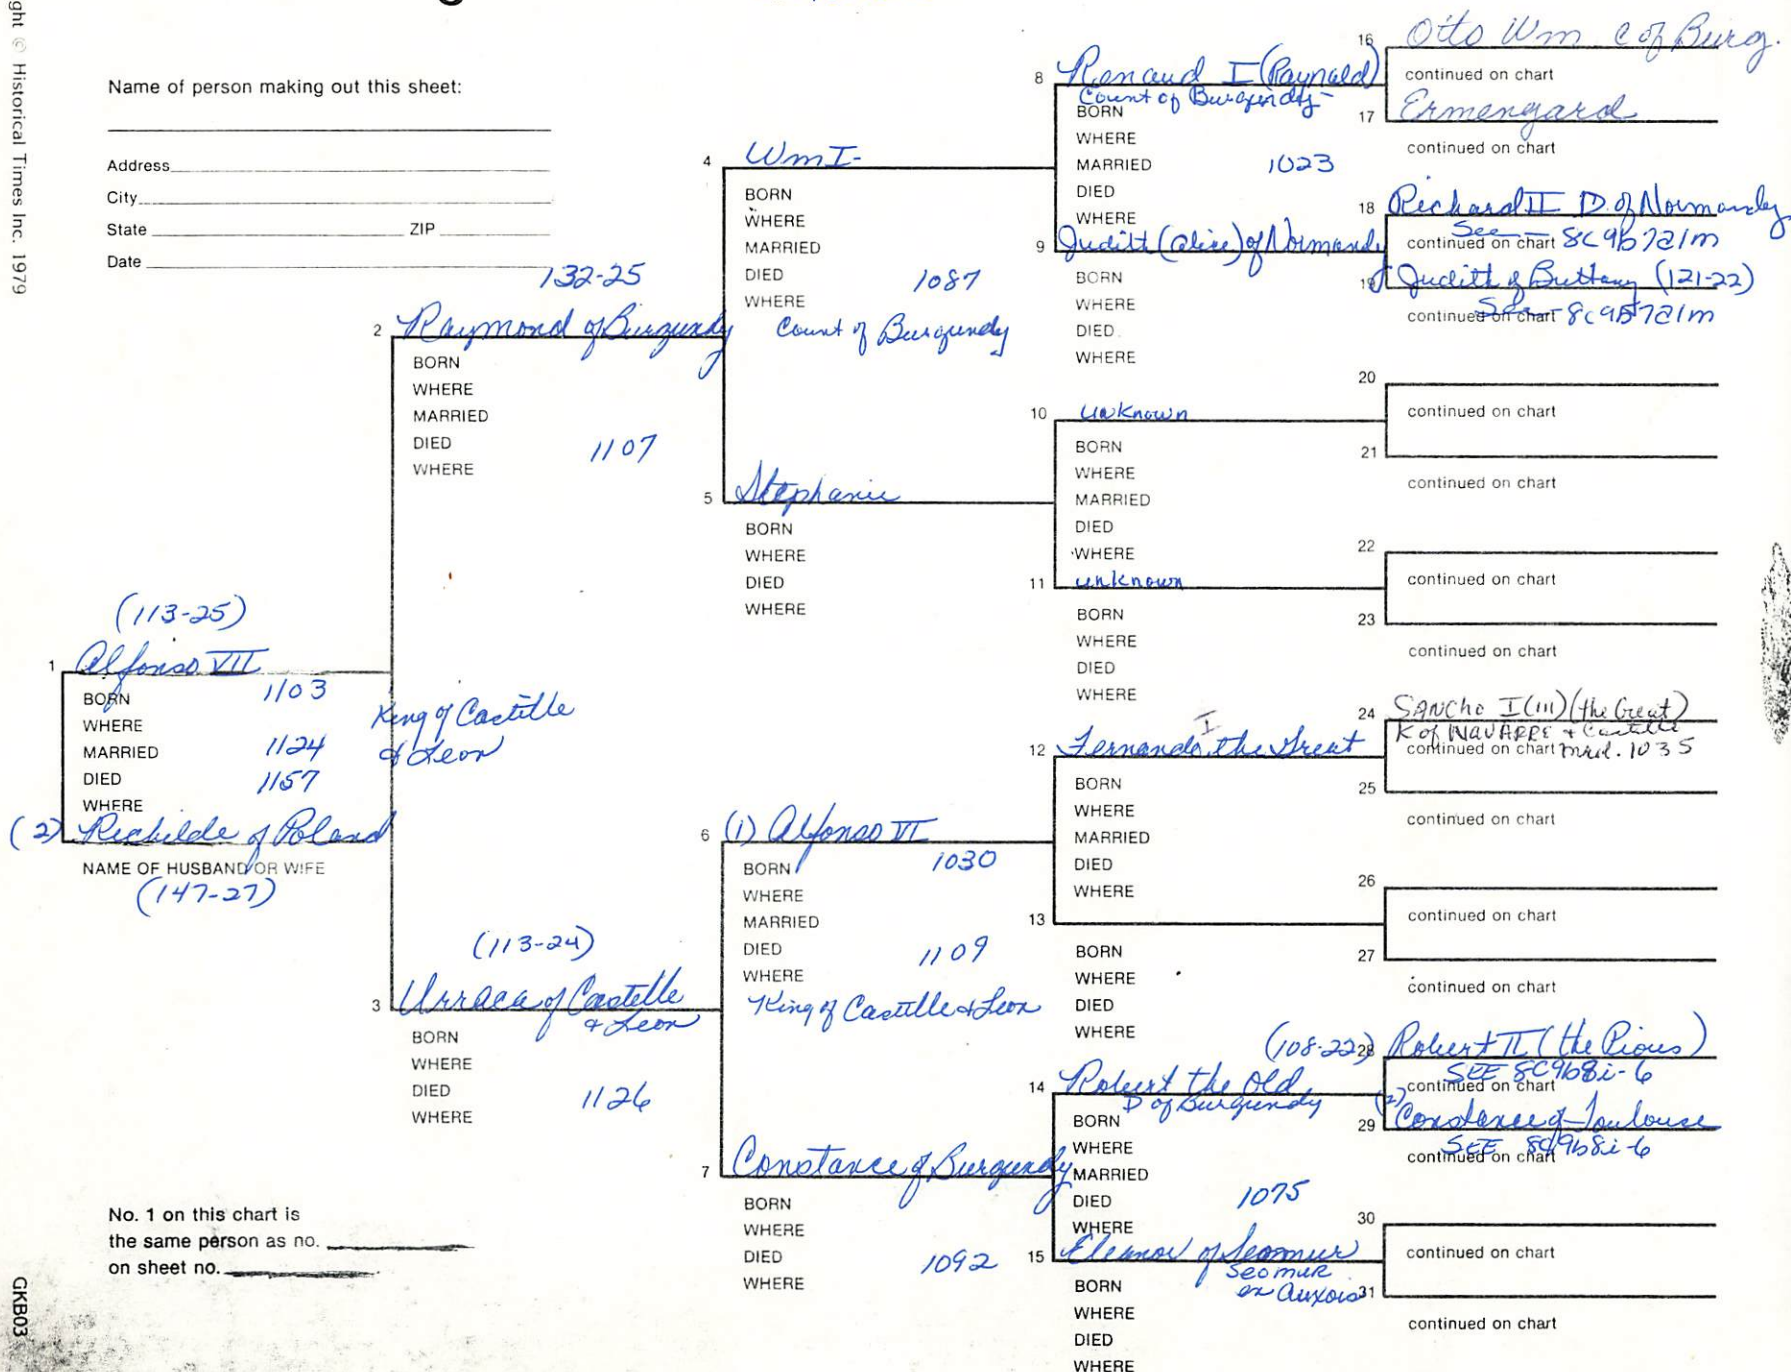 ght © Historical Times Inc. 1979
Name of person making out this sheet:
Address
City
State ZIP
Date
(113-25)
1 Alfonso VII
BORN 1103
WHERE
MARRIED 1124
DIED 1157
WHERE
King of Castille
& Leon
(2) Richilde of Poland
NAME OF HUSBAND OR WIFE
(147-27)
132-25
2 Raymond of Burgundy
BORN
WHERE
MARRIED
DIED 1107
WHERE
(113-24)
3 Urraca of Castille
& Leon
BORN
WHERE
DIED 1126
WHERE
4 Wm I-
BORN
WHERE
MARRIED
DIED 1087
WHERE
Count of Burgundy
5 Stephanie
BORN
WHERE
DIED
WHERE
6 (1) Alfonso VI
BORN 1030
WHERE
MARRIED
DIED 1109
WHERE
King of Castille & Leon
7 Constance of Burgundy
BORN
WHERE
DIED 1092
WHERE
8 Renaud I (Raynald)
Count of Burgundy-
BORN
WHERE
MARRIED 1023
DIED
WHERE
9 Judith (Alice) of Normandy
BORN
WHERE
DIED
WHERE
10 unknown
BORN
WHERE
MARRIED
DIED
WHERE
11 unknown
BORN
WHERE
DIED
WHERE
12 Fernando I the Great
BORN
WHERE
MARRIED
DIED
WHERE
13
BORN
WHERE
DIED
WHERE
14 Robert the Old
D of Burgundy
BORN
WHERE
MARRIED
DIED 1075
WHERE
15 Eleanor of Seomur
Seomur
en Auxois
BORN
WHERE
DIED
WHERE
16 Otto Wm C of Burg.
continued on chart
17 Ermengard
continued on chart
18 Richard II D. of Normandy
See - continued on chart 8c9b721m
19 Judith of Brittany (121-22)
See - continued on chart 8c9b721m
20
continued on chart
21
continued on chart
22
continued on chart
23
continued on chart
24 SANCHO I (III) (the Great)
K of NAVARRE & Castille
continued on chart mrd. 1035
25
continued on chart
26
continued on chart
27
continued on chart
(108-22) 28 Robert II (the Pious)
SEE 8C9b8i-6
continued on chart
(2) 29 Constance of Toulouse
SEE 8C9b8i-6
continued on chart
30
continued on chart
31
continued on chart
No. 1 on this chart is
the same person as no.
on sheet no.
GKB03